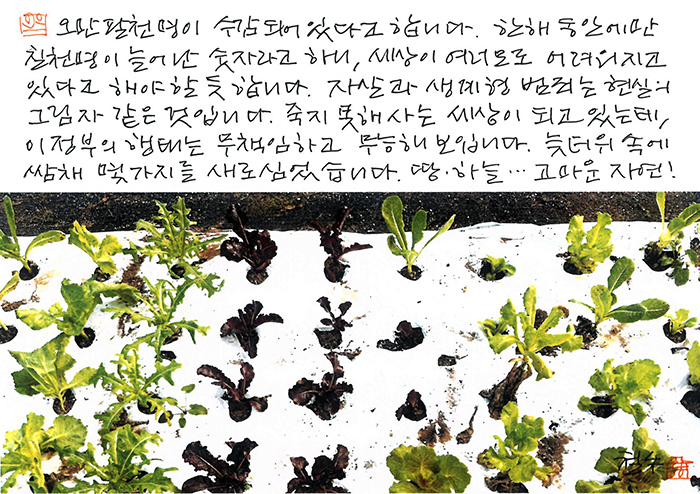 오만팔천명이 수감되어 있다고 합니다. 한해 동안에만
칠천명이 늘어난 숫자라고 하니, 세상이 여러모로 어려워지고
있다고 해야 할 듯 합니다. 자살과 생계형 범죄는 현실의
그림자 같은 것입니다. 죽지 못해 사는 세상이 되고 있는데,
이 정부의 행태는 무책임하고 무능해 보입니다. 늦더위 속에
쌈채 몇가지를 새로 심었습니다. 땅·하늘··· 고마운 자연!